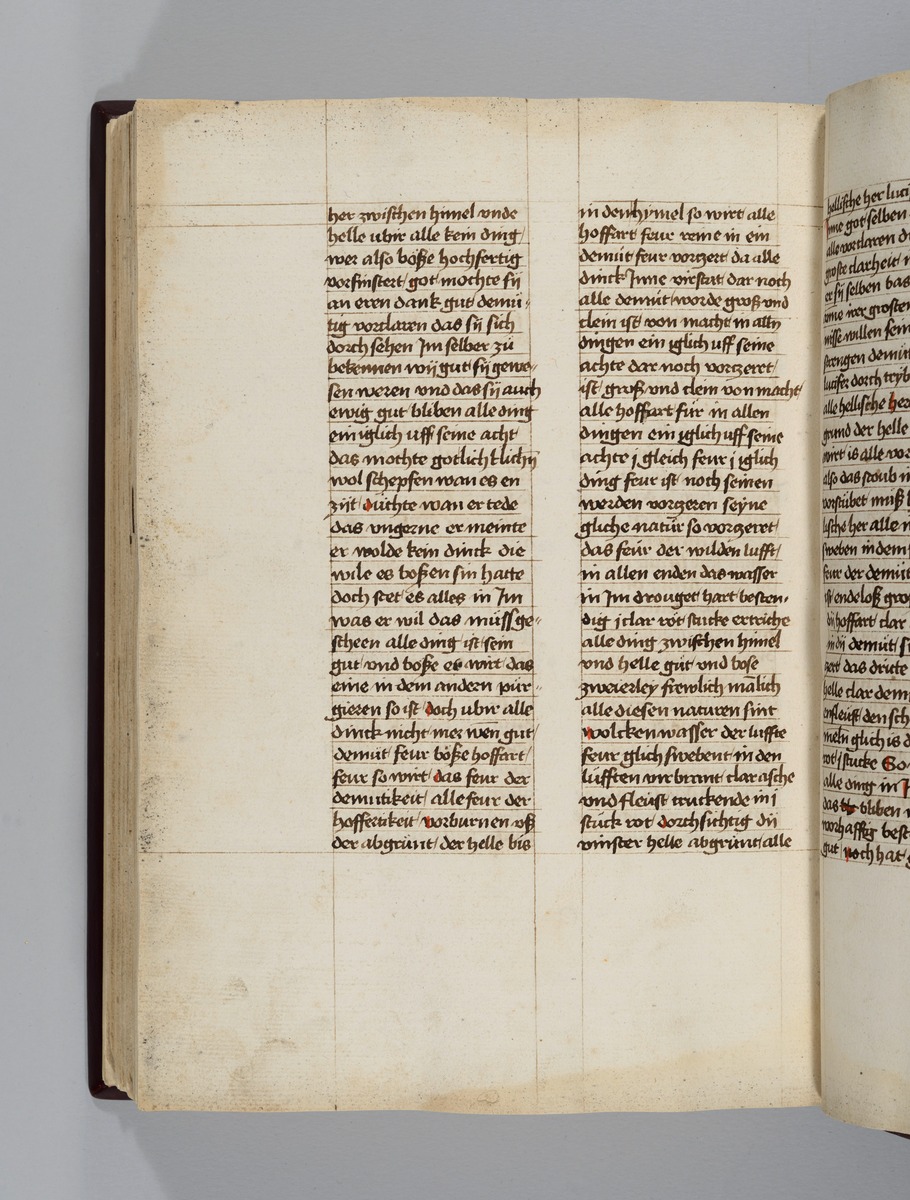 her zwischen himel vnde
helle ubir alle kein ding /
wer also böße hochfertig
vorfinstert / got mochte sÿ
an eren dank gut demü-
tig vorclaren das sÿ sich
dorch sehen Im selber zü
bekennen wÿ gut / sÿ gewe-
sen weren vnd das sÿ auch
ewig gut bliben alle ding
ein iglich uff seine acht
das mochte gotlich
wol schepfen wan es en
zijt düchte wan er tede
das vngerne er meinte
er wolde kein dinck die
wile es boßen sin hatte
doch stet es alles in Im
was er wil das müssge-
scheen alle ding ist sein
gut vnd böße es wirt das
eine in dem andern pür-
gieren so ist doch ubir alle
dinck nicht mer wen gut /
demüt feur böße hoffart /
feur so wirt das feur der
demutikeit alle feur der
hoffertikeit vorburnen uß
der abgrünt / der helle bis
in den hymel so wirt alle
hoffart feur reine in ein
demüt feur vorczert da alle
dinck Inne virstat dar noch
alle demüt worde groß vnd
clein ist von macht in alln
dingen ein iglich uff seine
achte dar noch vorczeret /
ist / groß vnd clein von macht /
alle hoffart für in allen
dingen ein iglich uff seine
achte j gleich feur j iglich
ding feur ist noch seinen
werden vorczeren seyne
gliche natür so vorczeret /
das feür der wilden lufft /
in allen enden das wasser
in Im drouget hart besten-
dig j clar rot stucke ertriche
alle ding zwischen himel
vnd helle güt vnd bose
zweierley frewlich mālich
alle diesen naturen sint
wolcken wasser der luffte
feur glich swebent in den
lüfften vir brant clar asche
vnd fleüst truckende in j
stück rot dorchsichtig dü
vinster helle abgrünt / alle
hellische her luci
Inne got selben
alle vorclaren
groste clarheit
er sÿ selben bas
wer grosten
nisse willen sein
strengen demüt
lucifer dorch
alle hellische her
grund der helle
wirt is alle vor
also das stoub
vorstübet müß
lische her alle
sweben in dem
feur der demüt
ist endeloß gro
dÿ hoffart clar
in dÿ demüt
zert das dritte
helle clar dem
den sch
meln glich is
rot j stucke So
alle ding in
das bliben
worhafftig best
gut noch hat